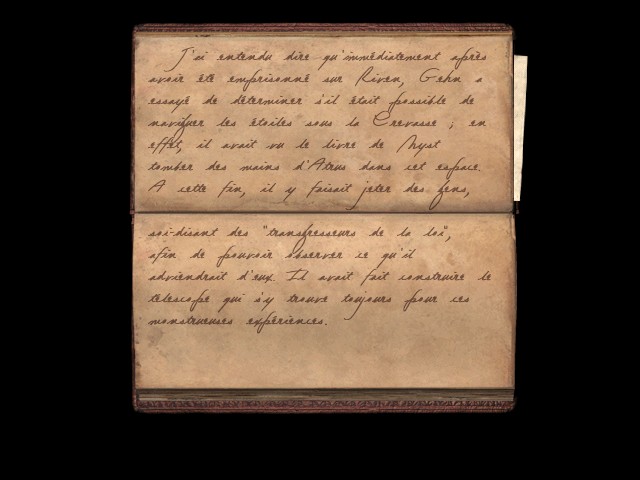 J'ai entendu dire qu'immédiatement après
avoir été emprisonné sur Riven, Gehn a
essayé de déterminer s'il était possible de
naviguer les étoiles sous la Crevasse ; en
effet, il avait vu le livre de Myst
tomber des mains d'Atrus dans cet espace.
A cette fin, il y faisait jeter des gens,
soi-disant des "transgresseurs de la loi",
afin de pouvoir observer ce qu'il
adviendrait d'eux. Il avait fait construire le
télescope qui s'y trouve toujours pour ces
monstrueuses expériences.